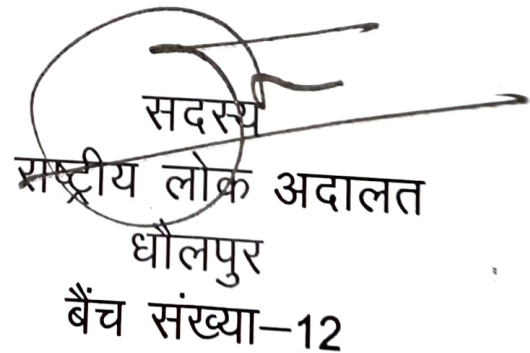 सदस्य
राष्ट्रीय लोक अदालत
धौलपुर
बैंच संख्या–12